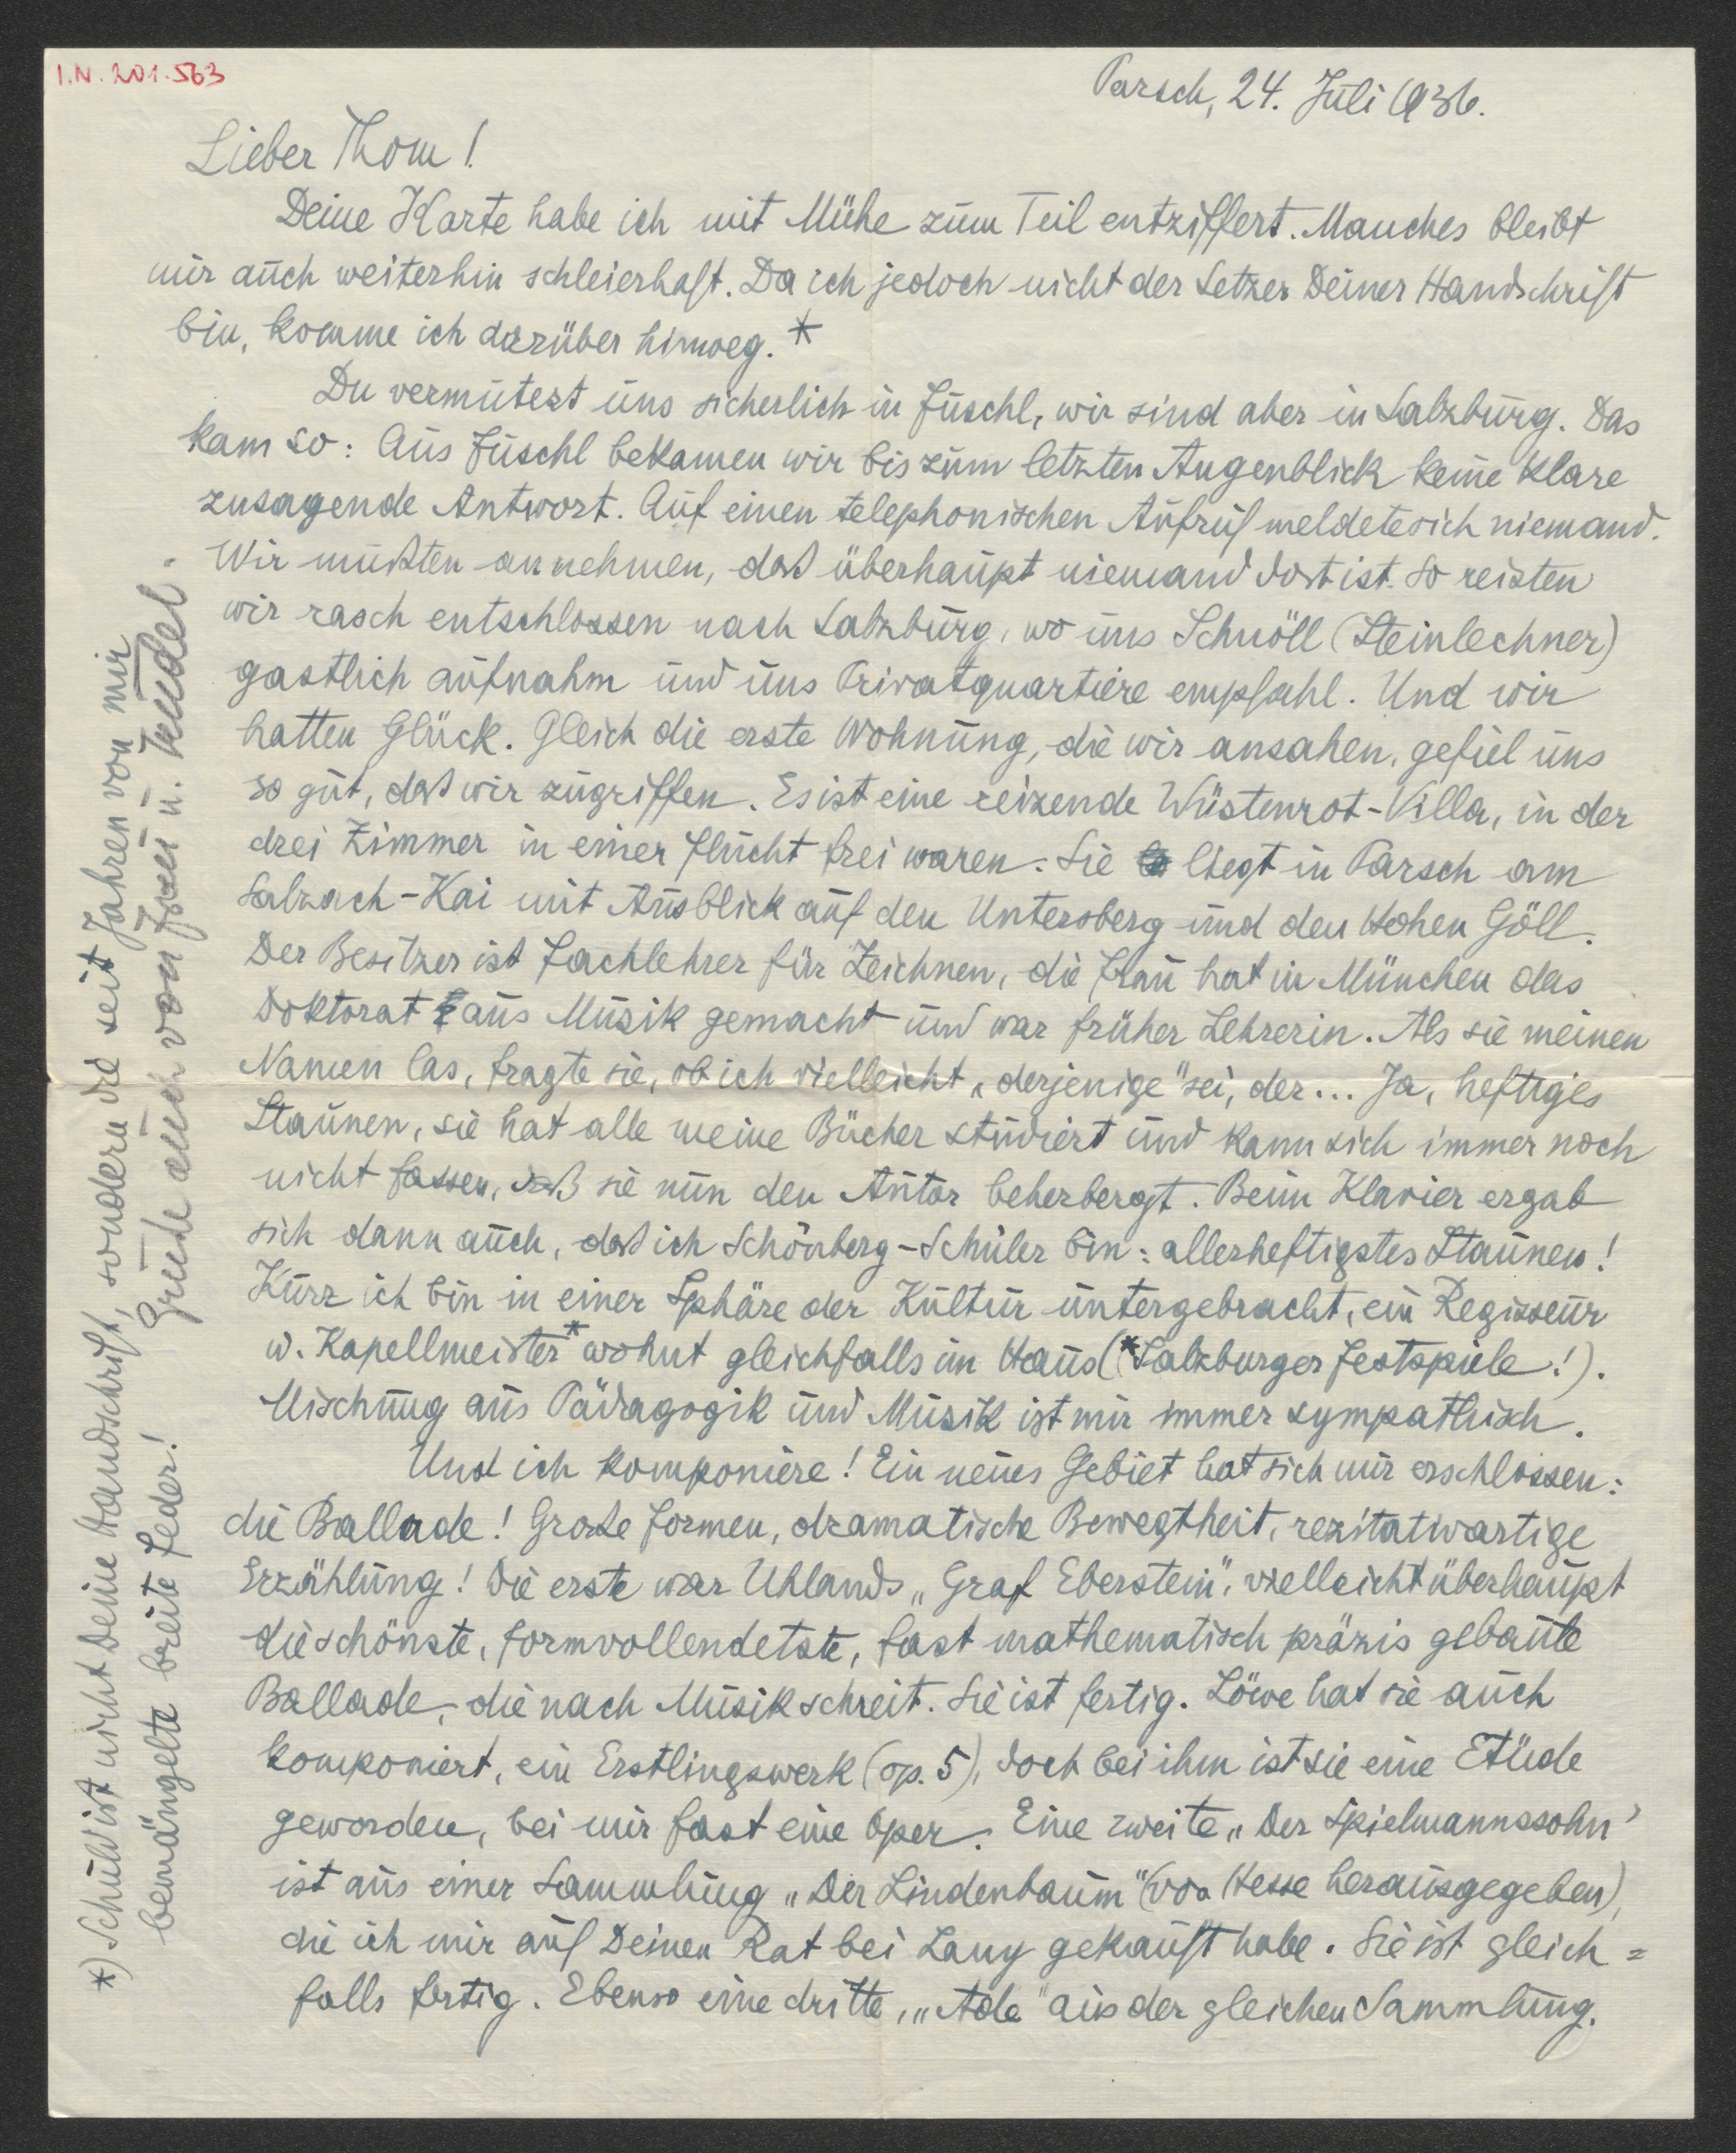 I.N. 201.563
Parsch, 24. Juli 1936.
Lieber Thom!
Deine Karte habe ich mit Mühe zum Teil entziffert. Manches bleibt
mir auch weiterhin schleierhaft. Da ich jedoch nicht der Setzer Deiner Handschrift
bin, komme ich darüber hinweg. *
Du vermutest uns sicherlich in Fuschl, wir sind aber in Salzburg. Das
kam so: Aus Fuschl bekamen wir bis zum letzten Augenblick keine klare
zusagende Antwort. Auf einen telephonischen Aufruf meldete sich niemand.
Wir mußten annehmen, daß überhaupt niemand dort ist. So reisten
wir rasch entschlossen nach Salzburg, wo uns Schnöll (Steinlechner)
gastlich aufnahm und uns Privatquartiere empfahl. Und wir
hatten Glück. Gleich die erste Wohnung, die wir ansahen, gefiel uns
so gut, daß wir zugriffen. Es ist eine reizende Wüstenrot-Villa, in der
drei Zimmer in einer Flucht frei waren. Sie liegt in Parsch am
Salzach-Kai mit Ausblick auf den Untersberg und den Hohen Göll.
Der Besitzer ist Fachlehrer für Zeichnen, die Frau hat in München das
Doktorat aus Musik gemacht und war früher Lehrerin. Als sie meinen
Namen las, fragte sie, ob ich vielleicht „derjenige" sei, der... Ja, heftiges
Staunen, sie hat alle meine Bücher studiert und kann sich immer noch
nicht fassen, daß sie nun den Autor beherbergt. Beim Klavier ergab
sich dann auch, daß ich Schönberg-Schüler bin: allerheftigstes Staunen!
Kurz ich bin in einer Sphäre der Kultur untergebracht, ein Regisseur
u. Kapellmeister* wohnt gleichfalls im Haus (*Salzburger Festspiele!).
Mischung aus Pädagogik und Musik ist mir immer sympathisch.
Und ich komponiere! Ein neues Gebiet hat sich mir erschlossen:
die Ballade! Große Formen, dramatische Bewegtheit, rezitativartige
Erzählung! Die erste war Uhlands „Graf Eberstein", vielleicht überhaupt
die schönste, formvollendetste, fast mathematisch präzis gebaute
Ballade, die nach Musik schreit. Sie ist fertig. Löwe hat sie auch
komponiert, ein Erstlingswerk (op. 5), doch bei ihm ist sie eine Etüde
geworden, bei mir fast eine Oper. Eine zweite „Der Spielmannssohn"
ist aus einer Sammlung „Der Lindenbaum" (von Hesse herausgegeben),
die ich mir auf Deinen Rat bei Lany gekauft habe. Sie ist gleich=
falls fertig. Ebenso eine dritte, „Ade" aus der gleichen Sammlung.
*) Schuld ist nicht Deine Handschrift, sondern die seit Jahren von mir
bemängelte breite Feder!
Grüße auch von Frau u. Mündel.